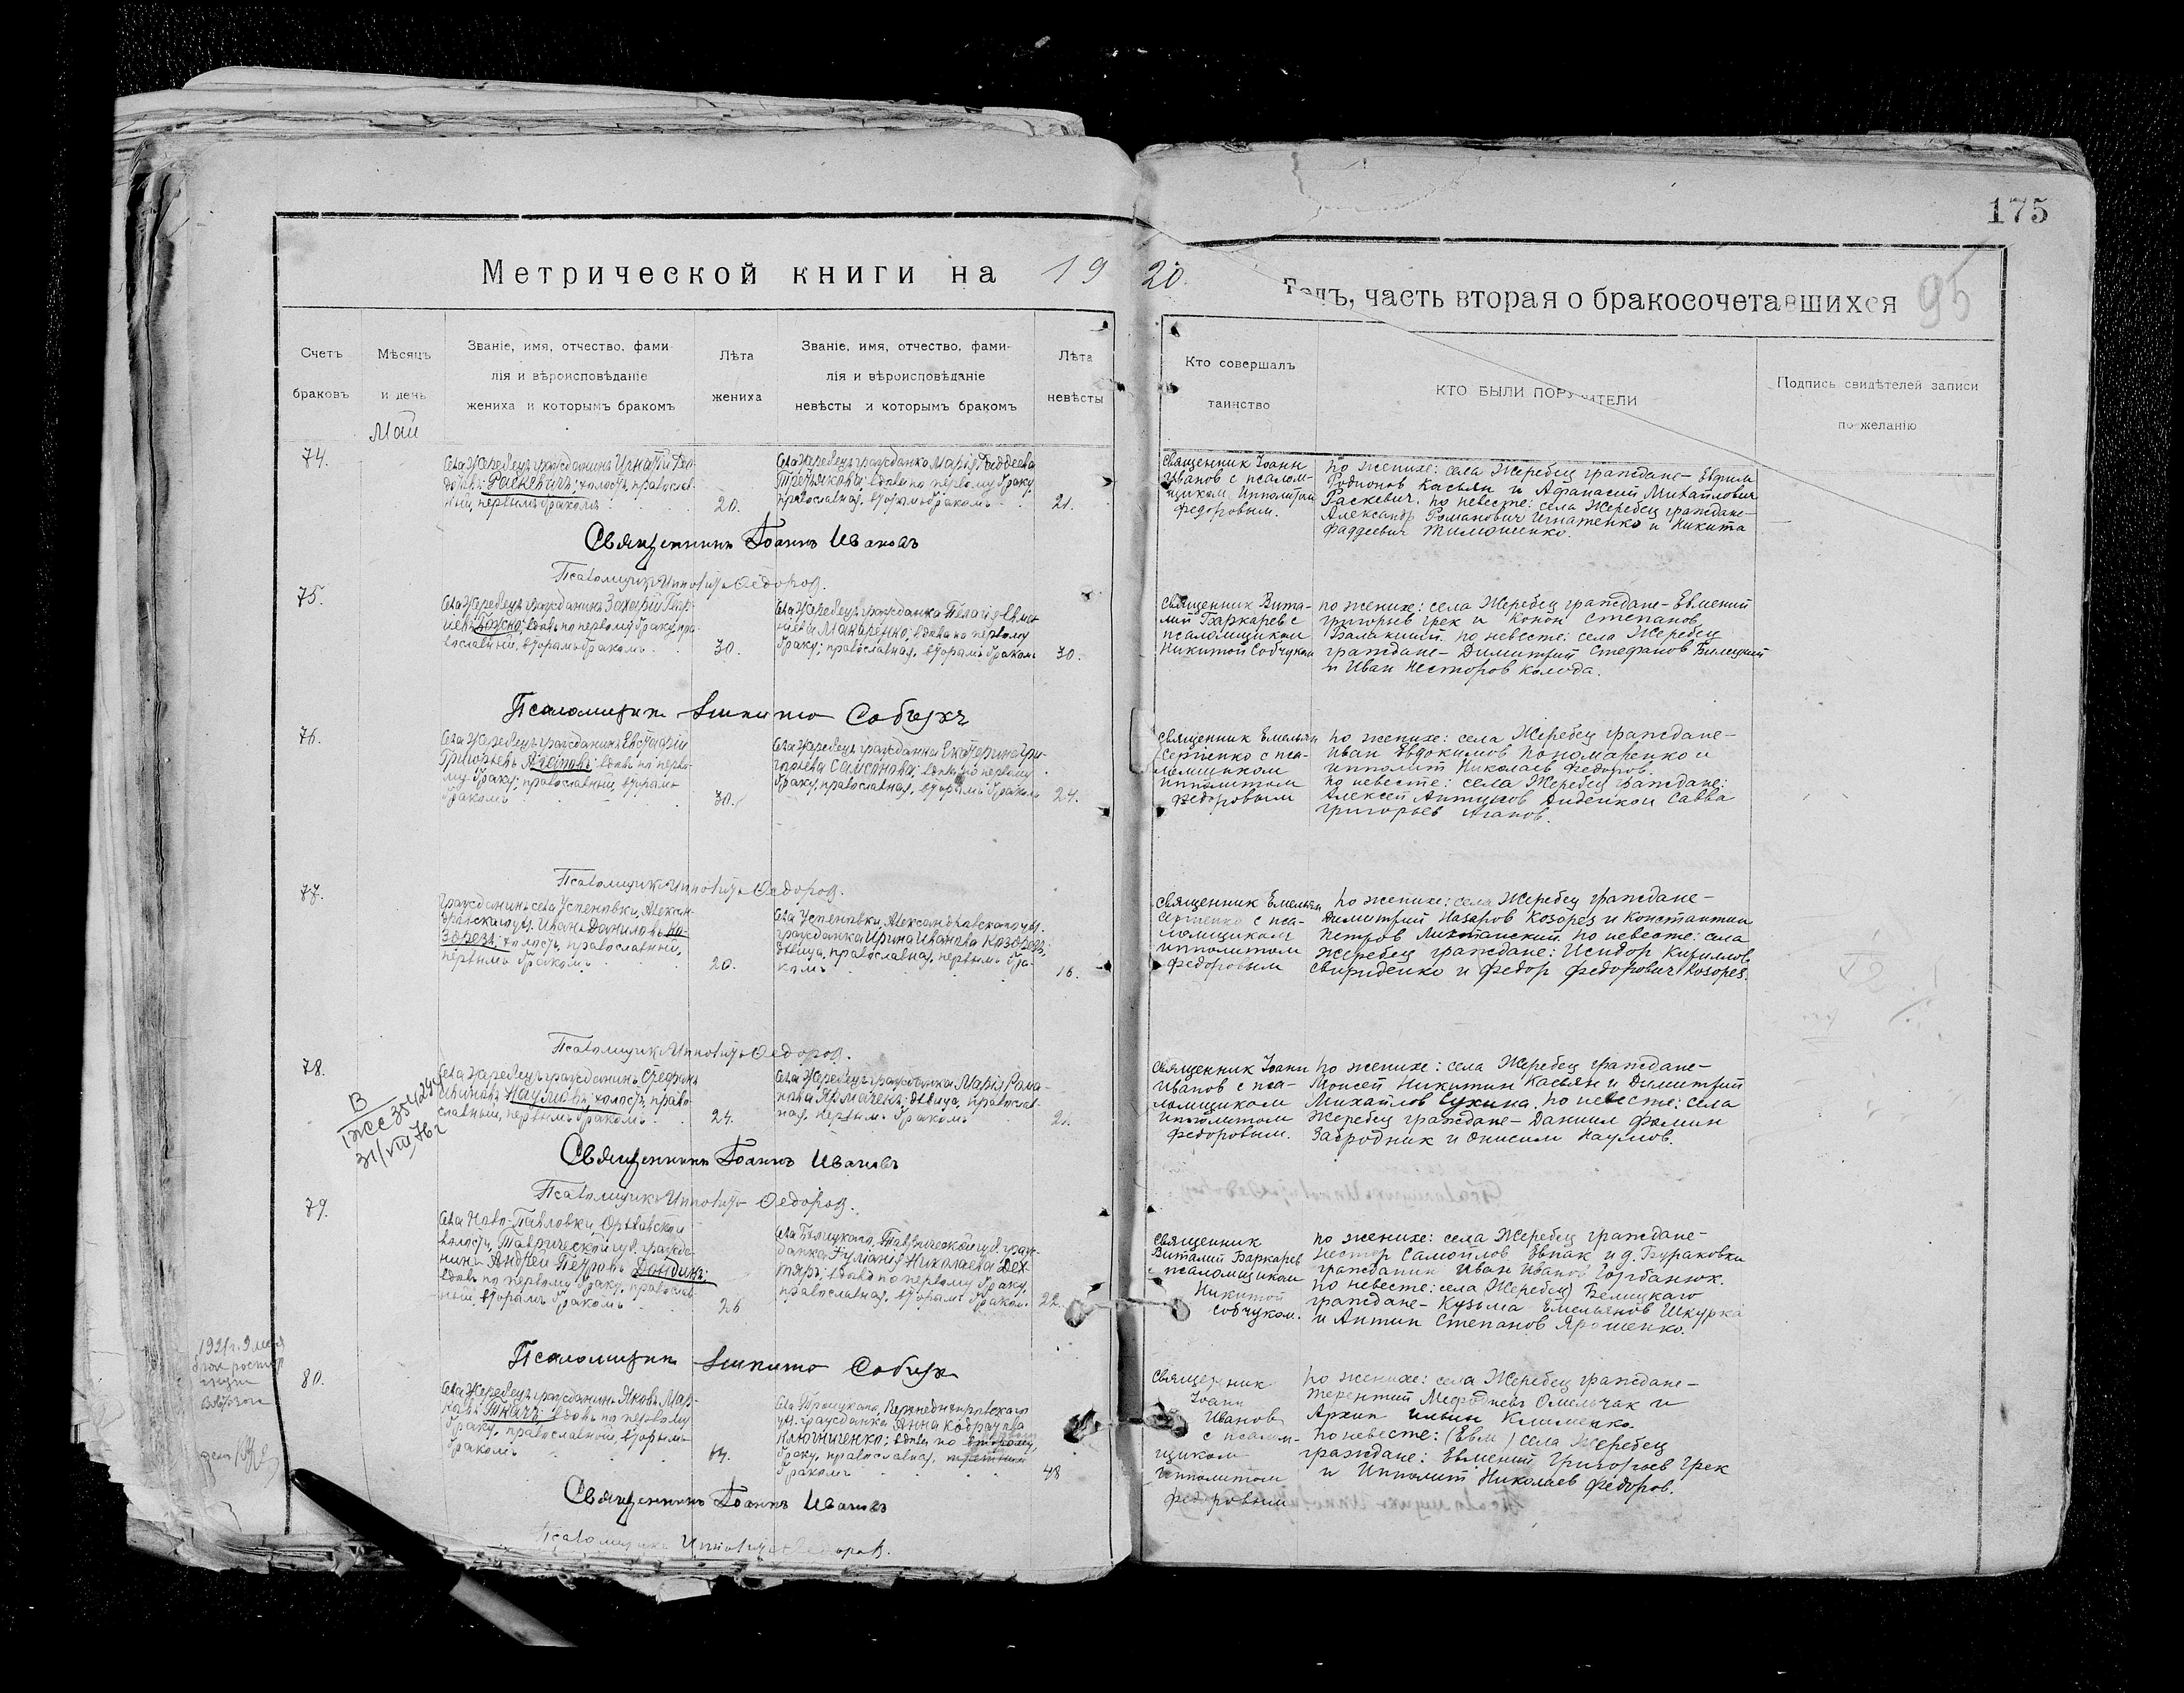 175
95
Метрической книги на 1920. Годъ, часть вторая о бракосочетавшихся
Счетъ браковъ
Мѣсяцъ и день
Званіе, имя, отчество, фами-
лія и вѣроисповѣданіе
жениха и которымъ бракомъ
Лѣта жениха
Званіе, имя, отчество, фами-
лія и вѣроисповѣданіе
невѣсты и которымъ бракомъ
Лѣта невѣсты
Кто совершалъ
таинство
КТО БЫЛИ ПОРУЧИТЕЛИ
Подпись свидѣтелей записи
по желанію
Май
74.
Села Жеребецъ гражданинъ Игнатій Фео-
доровъ Раскевичъ; холостъ, православ-
ный, первымъ бракомъ
20.
Села Жеребецъ гражданка Марія Фаддеева
Третьякова; вдова по первому браку,
православная, вторымъ бракомъ
21.
Священник Іоанн
Иванов с псалом-
щиком Ипполитом
Федоровым.
по женихе: села Жеребец граждане-
Родионов Касьян и Афанасий Михайлович
Раскевич. по невесте: села Жеребец граждане-
Александр Романович Игнатенко и Никита
Фаддеевич Тимошенко.
Священникъ Іоаннъ Ивановъ
Псаломщикъ Ипполитъ Федоров.
75.
Села Жеребецъ гражданинъ Захарій
вдовъ по первому браку, пра-
вославный, вторымъ бракомъ
30.
Села Жеребецъ гражданка Пелагія Евме-
ніева Макаренко; вдова по первому
браку; православная, вторымъ бракомъ
30.
Священник Вита-
лий Баркарев с
псаломщиком
Никитой Собчуком
по женихе: села Жеребец граждане- Евмений
Григорьев Грек и Конон Степанов
Балакший. по невесте: села Жеребец
граждане- Димитрий Стефанов Билецкий
и Иван Несторов Колода.
Псаломщикъ Никита Собчукъ
76.
Села Жеребецъ гражданинъ Евстафій
Григорьевъ Агаповъ; вдовъ по перво-
му браку; православный, вторымъ
бракомъ
30.
Села Жеребецъ гражданка Екатерина Гри-
горьева Самсонова; вдова по первому
браку, православная, вторымъ бракомъ
24.
Священник Емельян
Сергіенко с пса-
ломщиком
Ипполитом
Федоровым
по женихе: села Жеребец граждане-
Иван Евдокимов Пономаренко и
Ипполит Николаев Федоров.
по невесте: села Жеребец граждане:
Алексей Антипов Дидейко и Савва
Григорьев Агапов.
Псаломщикъ Ипполитъ Федоров.
77.
Гражданинъ села Успеновки, Алексан-
дровскаго уѣз. Иванъ Даниловъ Ко-
зорезъ; холостъ, православный,
первымъ бракомъ
20.
Села Успеновки, Александровскаго уѣз.
гражданка Ирина Иванова Козорезъ;
дѣвица, православная, первымъ бра-
комъ
16.
Священник Емельян
Сергиенко с пса-
ломщиком
Ипполитом
Федоровым
по женихе: села Жеребец граждане-
Димитрий Назаров Козорез и Константин
Петров по невесте: села
Жеребец граждане: Исидор Кириллов
Свириденко и Федор Федорович Козорез.
Псаломщикъ Ипполитъ Федоров.
78.
Села Жеребецъ гражданинъ Стефанъ
Наумовъ; холостъ, право-
славный, первымъ бракомъ
24.
Села Жеребецъ гражданка Марія Рома-
нова; дѣвица, православ-
ная, первымъ бракомъ
21.
Священник Іоанн
Иванов с пса-
ломщиком
Ипполитом
Федоровым.
по женихе: села Жеребец граждане-
Моисей Никитин Касьян и Димитрий
Михайлов Сухина. по невесте: села
Жеребец граждане- Даниил Фомин
Забродник и Онисим Наумов.
Священникъ Іоаннъ Ивановъ
Псаломщикъ Ипполитъ Федоров.
79.
Села Ново-Павловки,
волости, Таврической губ. гражда-
нинъ Андрей Петровъ Дондикъ;
вдовъ по первому браку, православ-
ный, вторымъ бракомъ
26
Села Бѣлицкаго, Таврической губ. граж-
данка Іуліанія Николаева Дех-
тярь; вдова по первому браку,
православная, вторымъ бракомъ.
22.
Священник
Виталий Баркарев
с псаломщиком
Никитой
Собчуком.
по женихе: села Жеребец граждане-
Нестор Самойлов Евпак и д. Бураковки
гражданин Иван Иванов Горбанюк.
по невесте: села (Жеребец) Белицкаго
граждане- Кузьма Емельянов Шкурка
и Антип Степанов Ярошенко.
Псаломщикъ Никита Собчук
80.
Села Жеребецъ гражданинъ Яковъ Мар-
ковъ Ткачъ; вдовъ по первому
браку, православный, вторымъ
бракомъ
64.
Села Троицкаго, Верхнеднепровскаго
уѣз. гражданка Анна Кодратова
Ключниченко; вдова по второму,
браку, православная, третьимъ
бракомъ
48
Священник
Іоанн
Иванов
с псалом-
щиком
Ипполитом
Федоровым
по женихе: села Жеребец граждане-
Терентий Мефодиев Омельчак и
Архип Ильин Клименко.
по невесте: (Евм) села Жеребец
граждане: Евмений Григорьев Грек
и Ипполит Николаев Федоров.
Священникъ Іоаннъ Ивановъ
Псаломщикъ Ипполитъ Федоров.